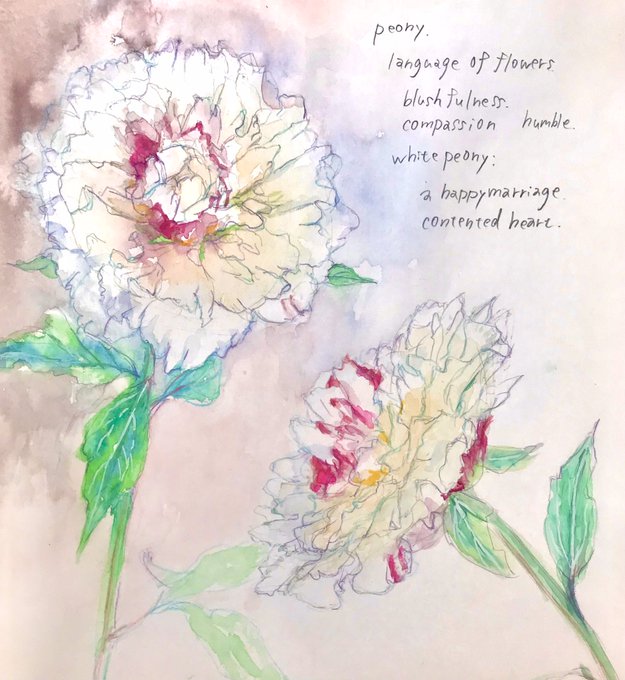 peony.
language of flowers
blushfulness.
compassion humble.
white peony:
a happy marriage.
contented heart.